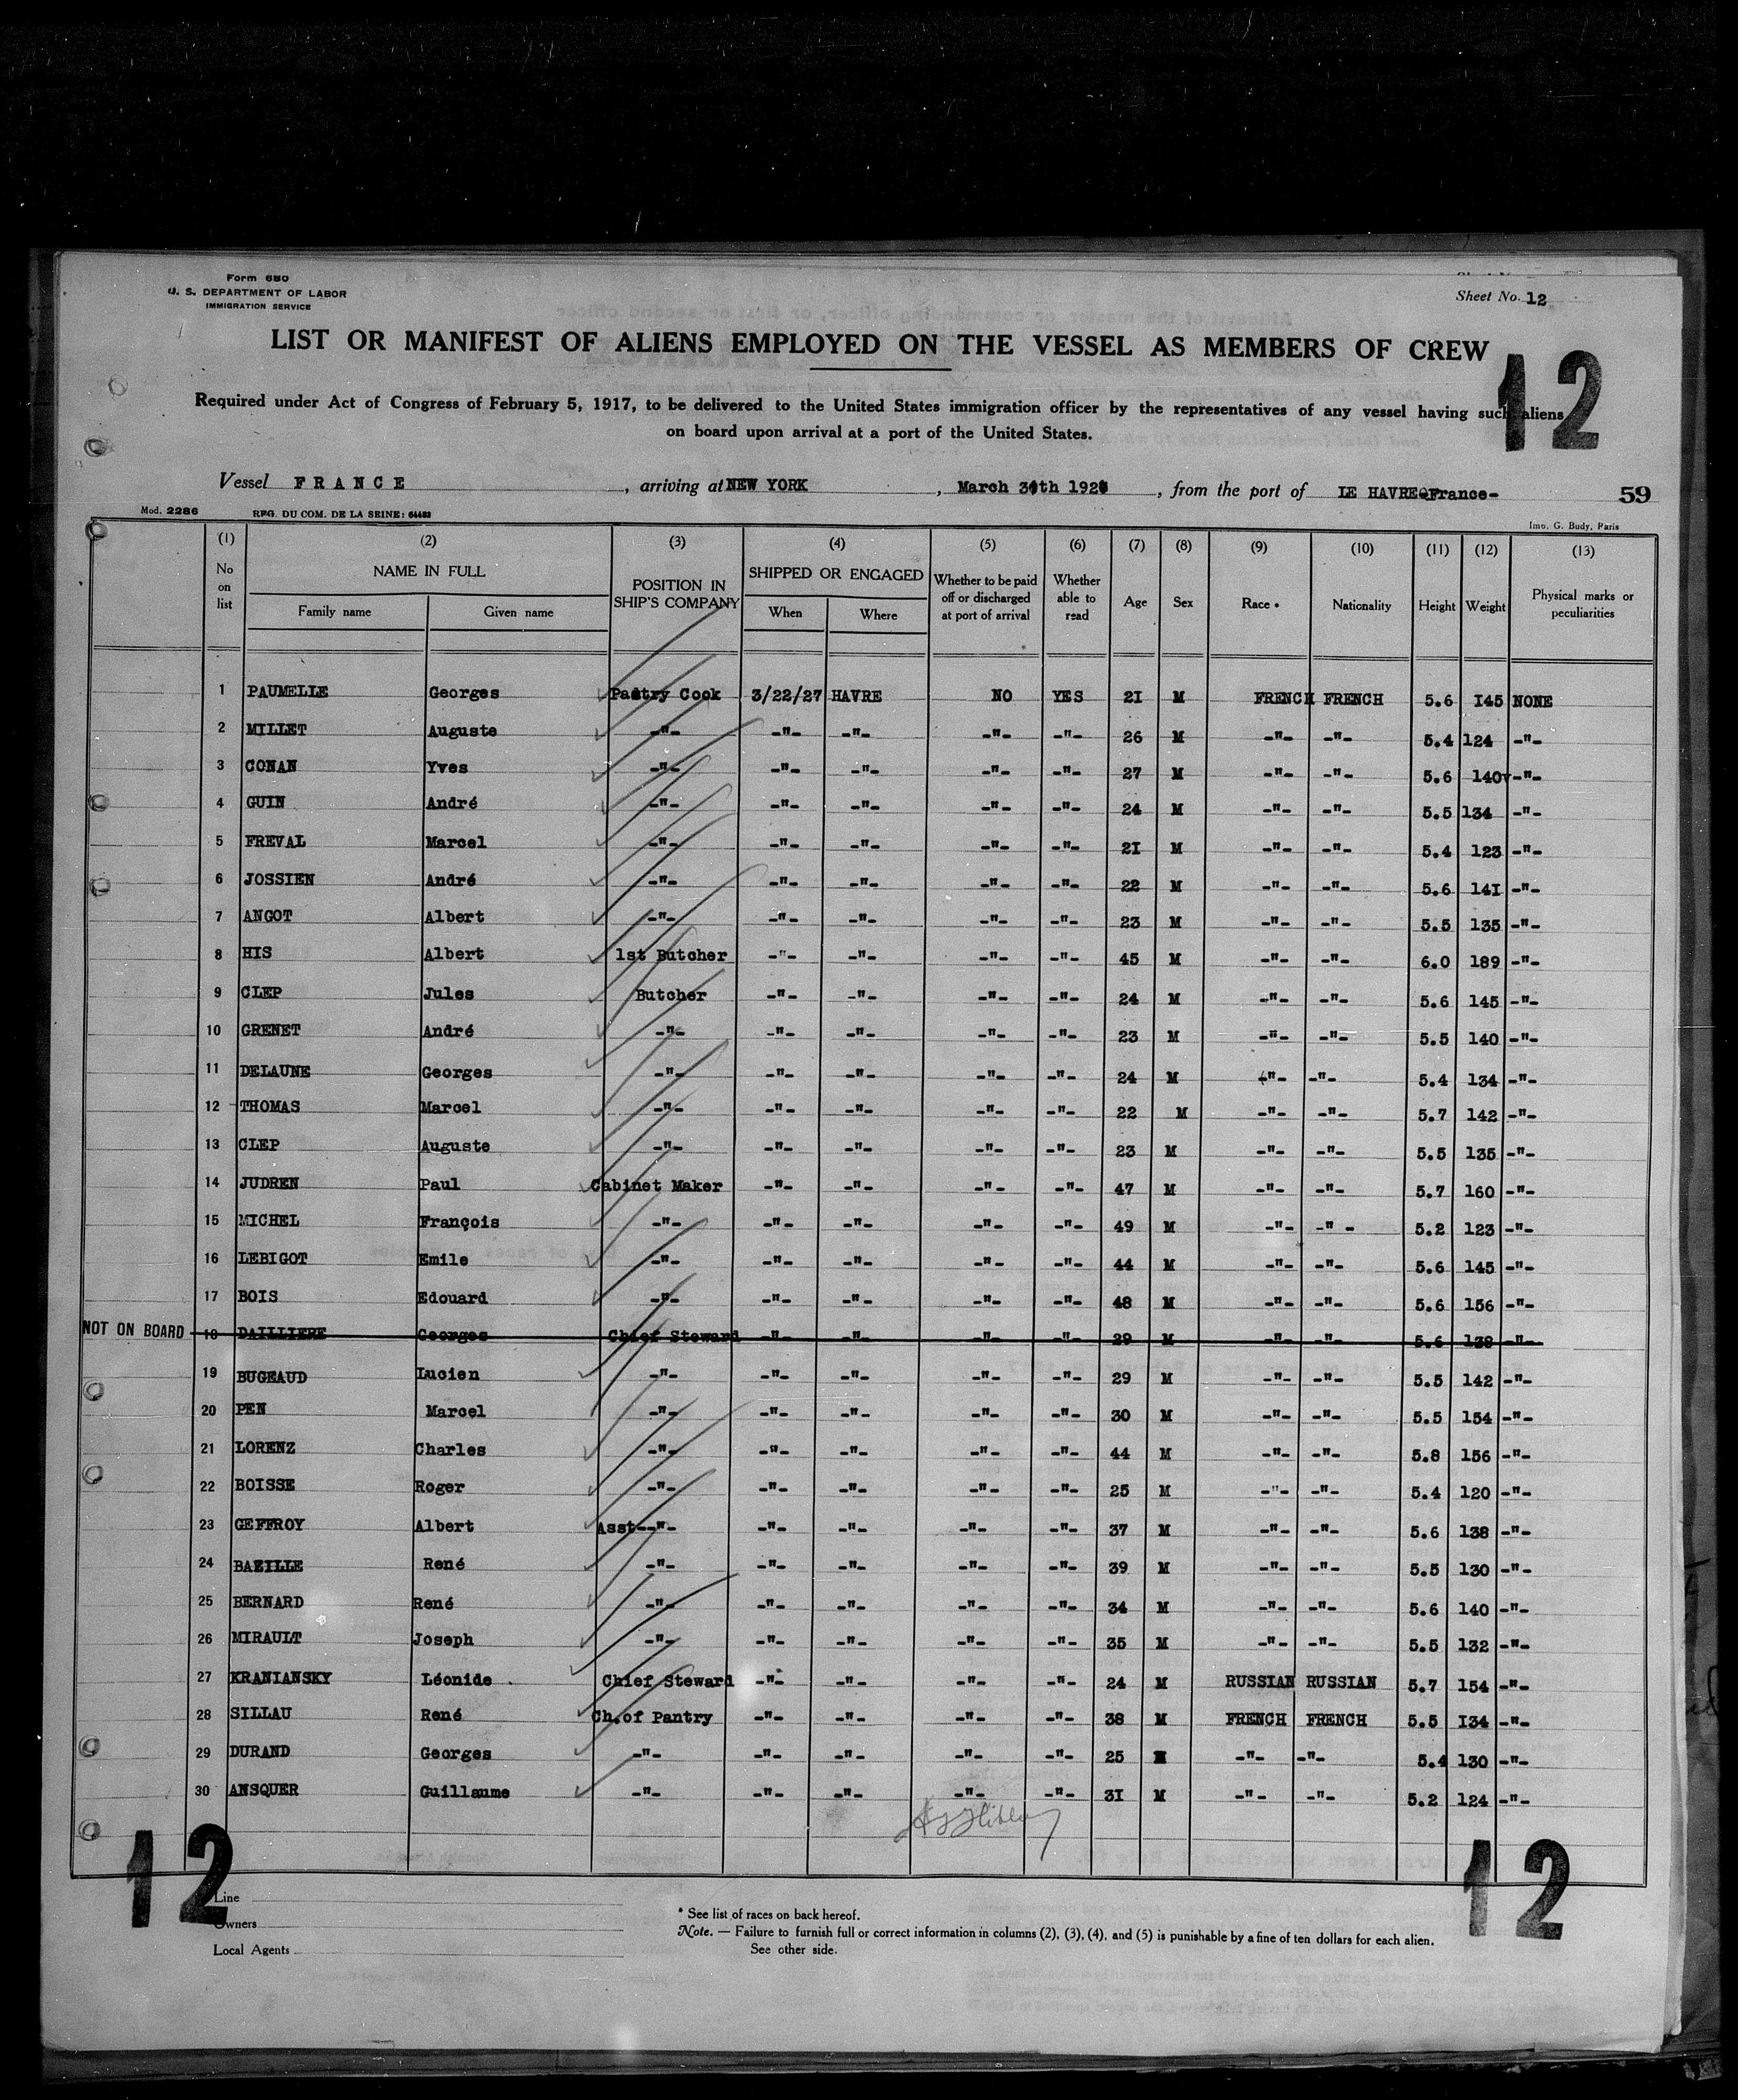 Form 680
U. S. DEPARTMENT OF LABOR
IMMIGRATION SERVICE
Sheet No. 12
LIST OR MANIFEST OF ALIENS EMPLOYED ON THE VESSEL AS MEMBERS OF CREW
12
Required under Act of Congress of February 5, 1917, to be delivered to the United States immigration officer by the representatives of any vessel having such aliens
on board upon arrival at a port of the United States.
Vessel FRANCE, arriving at NEW YORK, March, from the port of LE HAVRE-France- 59
Mod. 2286 REG. DU COM. DE LA SEINE: 64482 Imp. G. Budy, Paris
(1) (2) (3) (4) (5) (6) (7) (8) (9) (10) (11) (12) (13)
No on list NAME IN FULL Family name Given name POSITION IN SHIP'S COMPANY SHIPPED OR ENGAGED When Where Whether to be paid off or discharged at port of arrival Whether able to read Age Sex Race * Nationality Height Weight Physical marks or peculiarities
1 PAUMELLE Georges Pastry Cook 3/22/27 HAVRE NO YES 2I M FRENCH FRENCH 5.6 I45 NONE
2 MILLET Auguste -"- -"- -"- -"- -"- 26 M -"- -"- 5.4 124 -"-
3 CONAN Yves -"- -"- -"- -"- -"- 27 M -"- -"- 5.6 140 -"-
4 GUIN André -"- -"- -"- -"- -"- 24 M -"- -"- 5.5 134 -"-
5 FREVAL Marcel -"- -"- -"- -"- -"- 2I M -"- -"- 5.4 123 -"-
6 JOSSIEN André -"- -"- -"- -"- -"- 22 M -"- -"- 5.6 14I -"-
7 ANGOT Albert -"- -"- -"- -"- -"- 23 M -"- -"- 5.5 135 -"-
8 HIS Albert 1st Butcher -"- -"- -"- -"- 45 M -"- -"- 6.0 189 -"-
9 CLEP Jules Butcher -"- -"- -"- -"- 24 M -"- -"- 5.6 145 -"-
10 GRENET André -"- -"- -"- -"- -"- 23 M -"- -"- 5.5 140 -"-
11 DELAUNE Georges -"- -"- -"- -"- -"- 24 M -"- -"- 5.4 134 -"-
12 THOMAS Marcel -"- -"- -"- -"- -"- 22 M -"- -"- 5.7 142 -"-
13 CLEP Auguste -"- -"- -"- -"- -"- 23 M -"- -"- 5.5 135 -"-
14 JUDREN Paul Cabinet Maker -"- -"- -"- -"- 47 M -"- -"- 5.7 160 -"-
15 MICHEL François -"- -"- -"- -"- -"- 49 M -"- -"- 5.2 123 -"-
16 LEBIGOT Emile -"- -"- -"- -"- -"- 44 M -"- -"- 5.6 145 -"-
17 BOIS Edouard -"- -"- -"- -"- -"- 48 M -"- -"- 5.6 156 -"-
NOT ON BOARD 18 DAILLIERE Georges Chief Steward -"- -"- -"- -"- 29 M -"- -"- 5.6 138 -"-
19 BUGEAUD Lucien -"- -"- -"- -"- -"- 29 M -"- -"- 5.5 142 -"-
20 PEN Marcel -"- -"- -"- -"- -"- 30 M -"- -"- 5.5 154 -"-
21 LORENZ Charles -"- -"- -"- -"- -"- 44 M -"- -"- 5.8 156 -"-
22 BOISSE Roger -"- -"- -"- -"- -"- 25 M -"- -"- 5.4 120 -"-
23 GEFFROY Albert Asst--"- -"- -"- -"- -"- 37 M -"- -"- 5.6 138 -"-
24 BAZILLE René -"- -"- -"- -"- -"- 39 M -"- -"- 5.5 130 -"-
25 BERNARD René -"- -"- -"- -"- -"- 34 M -"- -"- 5.6 140 -"-
26 MIRAULT Joseph -"- -"- -"- -"- -"- 35 M -"- -"- 5.5 132 -"-
27 KRANIANSKY Léonide Chief Steward -"- -"- -"- -"- 24 M RUSSIAN RUSSIAN 5.7 154 -"-
28 SILLAU René Ch.of Pantry -"- -"- -"- -"- 38 M FRENCH FRENCH 5.5 I34 -"-
29 DURAND Georges -"- -"- -"- -"- -"- 25 M -"- -"- 5.4 130 -"-
30 ANSQUER Guillaume -"- -"- -"- -"- -"- 3I M -"- -"- 5.2 124 -"-
12 12
Line
Owners
Local Agents
* See list of races on back hereof.
Note. — Failure to furnish full or correct information in columns (2), (3), (4), and (5) is punishable by a fine of ten dollars for each alien.
See other side.